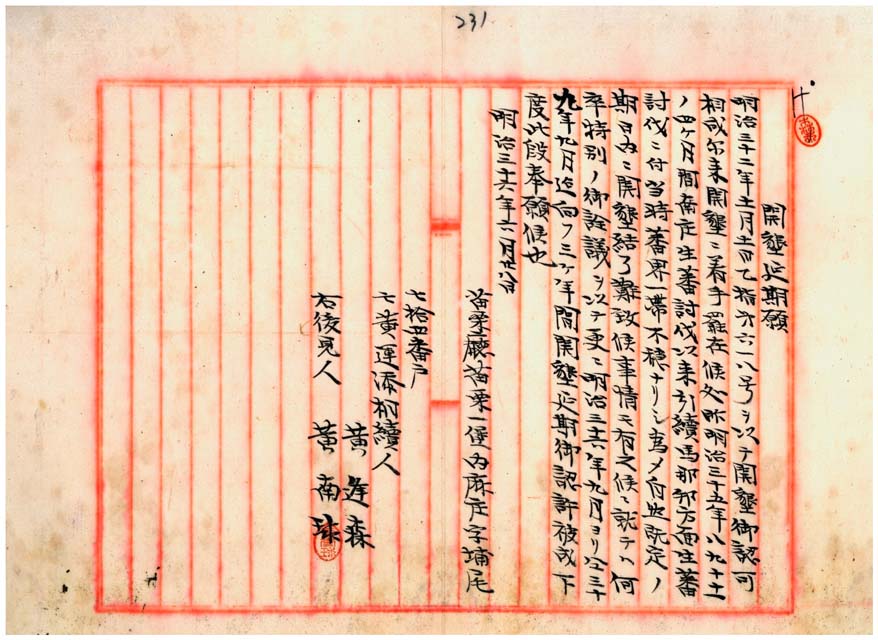 231
開墾延期願
明治三十二年十一月十一日乙指第六一八号ヲ以テ開墾御認可
相成尓来開墾ニ着手罷在候処昨明治三十五年八九十十一
ノ四ヶ月間南庄生蕃討伐以来引續馬那邦方面生蕃
討伐ニ付当時蕃界一帯不穏ナリシ為メ自然既定ノ
期日内ニ開墾結了難致候事情モ有之候ニ就テハ何
卒特別ノ御詮議ヲ以テ更ニ明治三十六年九月ヨリ仝三十
九年九月迄向フ三ヶ年間開墾延期御認許被成下
度此段奉願候也
明治三十六年六月廿八日
苗栗廳苗栗一堡内麻庄字埔尾
七拾四番戸
亡黄運添相續人
黄逢森
右後見人 黄南球